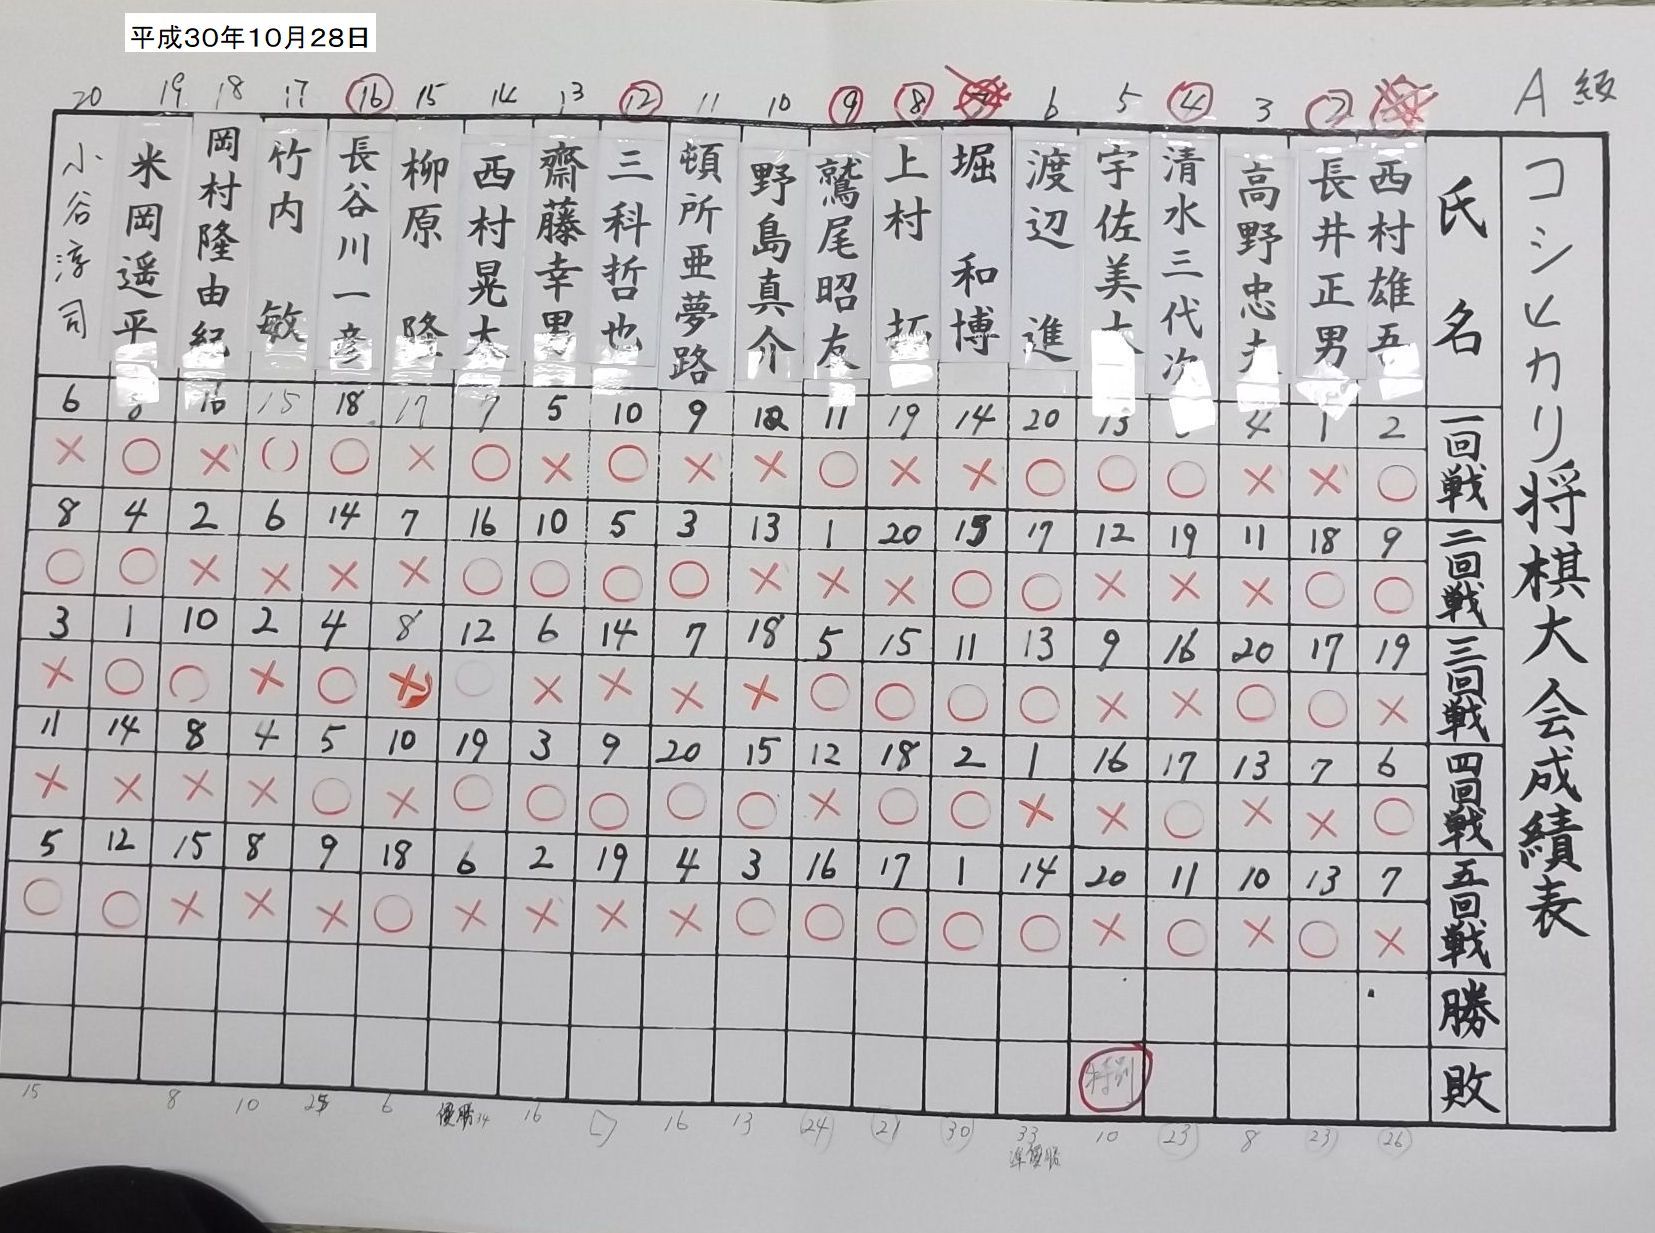 平成30年10月28日
A級
コシヒカリ将棋大会成績表
20 19 18 17 16 15 14 13 12 11 10 9 8 6 5 4 3 2
氏名
西村雄吾
長井正男
高野忠夫
清水三代次
宇佐美大
渡辺進
堀和博
上村拓
鷲尾昭友
野島真介
頓所亜夢路
三科哲也
齋藤幸男
西村晃大
柳原隆
長谷川一彦
竹内敏
岡村隆由紀
米岡遥平
小谷淳司
一回戦
6 8 16 15 18 17 7 5 10 9 12 11 19 14 20 13 4 1 2
× ○ × ○ ○ × ○ × ○ × × ○ × × ○ ○ ○ × × ○
二回戦
8 4 2 6 14 7 16 10 5 3 13 1 20 15 17 12 19 11 18 9
○ ○ × × × × ○ ○ ○ ○ × × × ○ ○ × × × ○ ○
三回戦
3 1 10 2 4 8 12 6 14 7 18 5 15 11 13 9 16 20 17 19
× ○ ○ × ○ × ○ × × × × ○ ○ ○ ○ × × ○ ○ ×
四回戦
11 14 8 4 5 10 19 3 9 20 15 12 18 2 1 16 17 13 7 6
× × × × ○ × ○ ○ ○ ○ ○ × ○ ○ × × ○ × × ○
五回戦
5 12 15 8 9 18 6 2 19 4 3 16 17 1 14 20 11 10 13 7
○ ○ × × × ○ × × × × ○ ○ ○ ○ ○ × ○ × ○ ×
勝
敗
特別
15 8 10 6 優勝34 16 16 13 24 21 30 33 10 23 8 23 26
準優勝